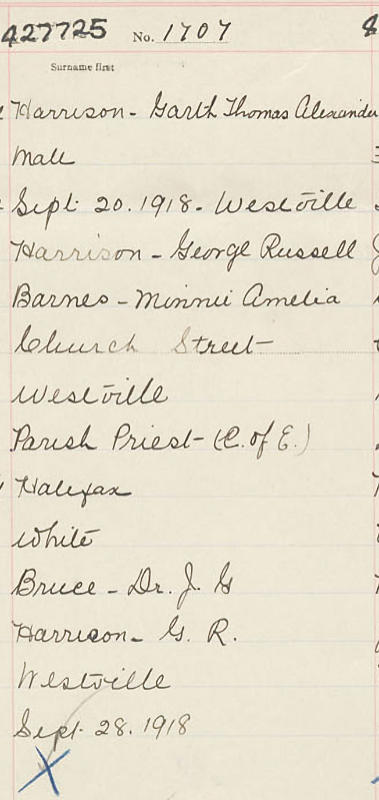 427725 No. 1707
Surname first
Harrison - Garth Thomas Alexander
Male
Sept. 20. 1918 - Westville
Harrison - George Russell
Barnes - Minnie Amelia
Church Street
Westville
Parish Priest - (C. of E.)
Halifax
White
Bruce - Dr. J. G
Harrison - G. R.
Westville
Sept. 28. 1918
X